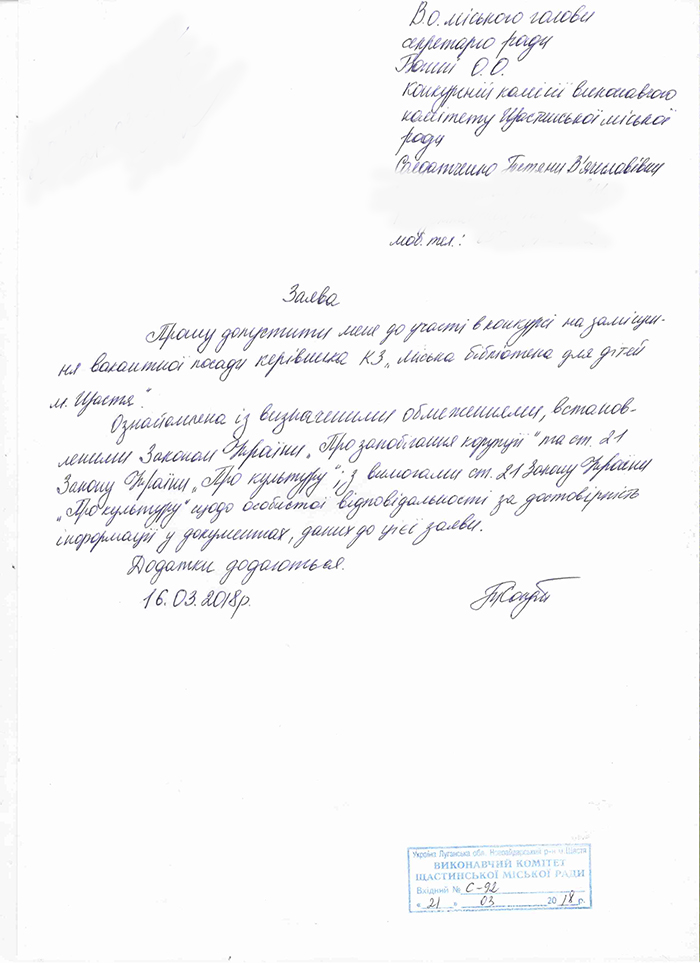 В.о. міського голови
секретарю ради
О.О.
Конкурсній комісії виконавчого
комітету Щастинської міської
ради
Тетяни В'ячеславівни
моб. тел.:
Заява
Прошу допустити мене до участі в конкурсі на заміщен-
ня вакантної посади керівника КЗ „міська бібліотека для дітей
м. Щастя".
Ознайомлена із визначеними обмеженнями, встанов-
леними Законом України „Про запобігання корупції" та ст. 21
Закону України „Про культуру"; з вимогами ст. 21 Закону України
„Про культуру" щодо особистої відповідальності за достовірність
інформації у документах, даних до цієї заяви.
Додатки додаються.
16.03.2018р.
Україна Луганська обл. Новоайдарський р-н м.Щастя
ВИКОНАВЧИЙ КОМІТЕТ
ЩАСТИНСЬКОЇ МІСЬКОЇ РАДИ
Вхідний № С-92
« 21 » 03 2018 р.